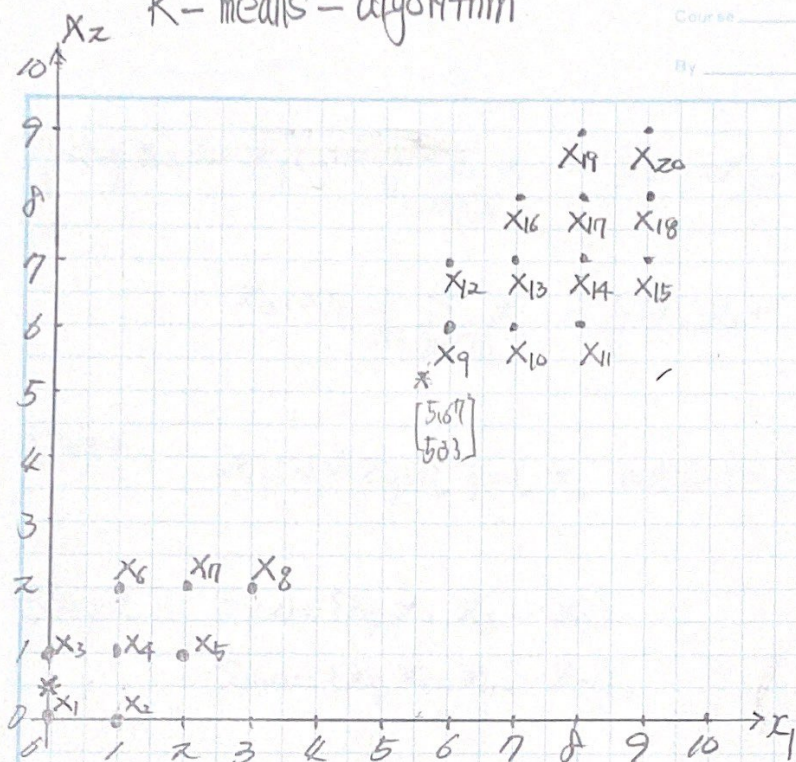 K- means - algorithm
Course
By
X2
10
9
X19 X20
8
X16 X17 X18
7
X12 X13 X14 X15
6
X9 X10 X11
5
[5.67
5.33]
4
3
X6 X7 X8
2
1 X3 X4 X5
X1 X2
0
0 1 2 3 4 5 6 7 8 9 10 X1